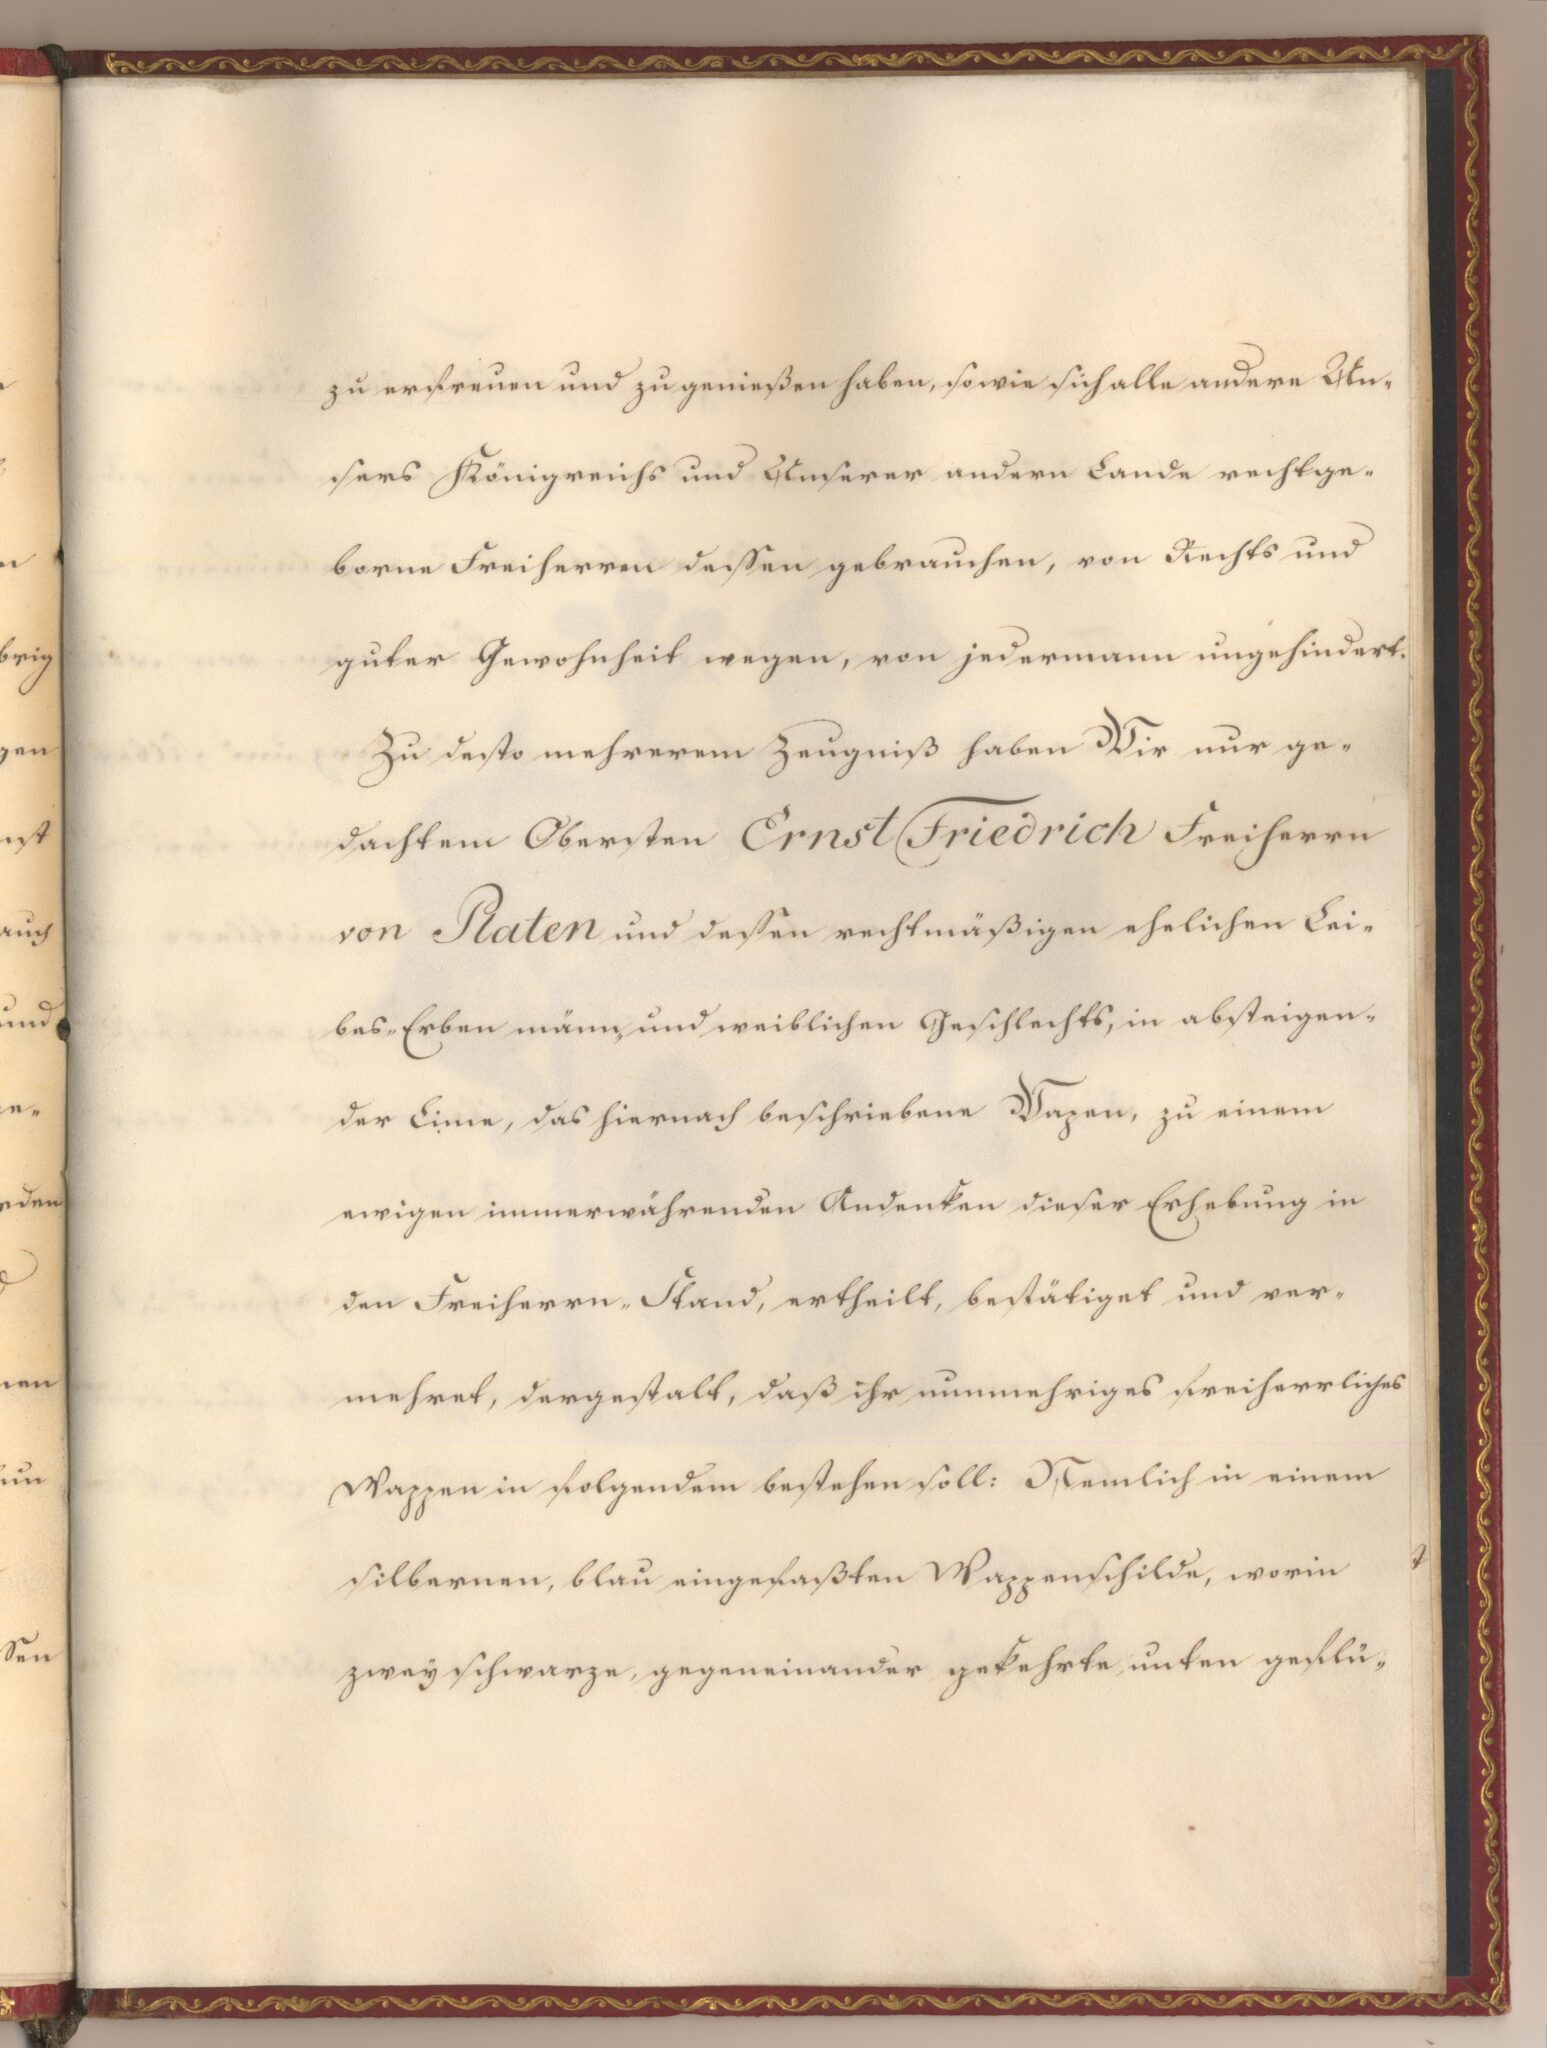 zu erfreuen und zu genießen haben, sowie sich alle andere Un-
sers Königreichs und Unserer andern Lande rechtge-
borne Freiherren dessen gebrauchen, von Rechts und
guter Gewohnheit wegen, von jedermann ungehindert.
Zu desto mehrerem Zeugniß haben Wir nur ge-
dachtem Obersten Ernst Friedrich Freiherrn
von Platen und dessen rechtmäßigen ehelichen Lei-
bes-Erben männ- und weiblichen Geschlechts, in absteigen-
der Linie, das hiernach beschriebene Wapen, zu einem
ewigen immerwährenden Andenken dieser Erhebung in
den Freiherrn-Stand, ertheilt, bestätiget und ver-
mehret, dergestalt, daß ihr nunmehriges freiherrliches
Wappen in folgendem bestehen soll: Nemlich in einem
silbernen, blau eingefaßten Wappenschilde, worin
zwey schwarze, gegeneinander gekehrte, unten geflü-